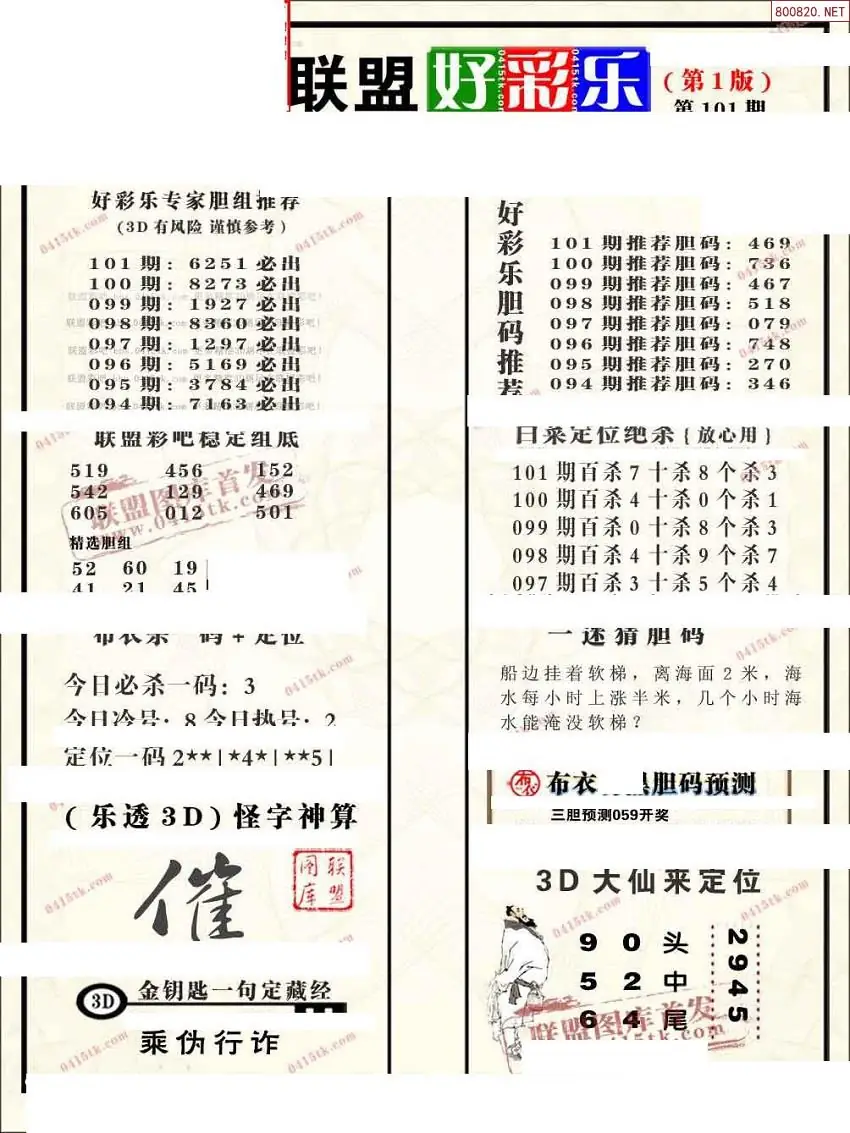 800820.NET
联盟好彩乐(第1版)
第101期
好彩乐专家胆组推荐
(3D有风险 谨慎参考)
101期: 6251必出
100期: 8273必出
099期: 1927必出
098期: 8360必出
097期: 1297必出
096期: 5169必出
095期: 3784必出
094期: 7163必出
联盟彩吧稳定组底
519 456 152
542 129 469
605 012 501
精选胆组
52 60 19
41 21 45
今日必杀一码: 3
今日冷号: 8 今日热号: 2
定位一码 2**|*4*|**5|
(乐透3D)怪字神算
催
联盟图库
3D 金钥匙一句定藏经
乘伪行诈
好彩乐胆码推荐
101期推荐胆码: 469
100期推荐胆码: 736
099期推荐胆码: 467
098期推荐胆码: 518
097期推荐胆码: 079
096期推荐胆码: 748
095期推荐胆码: 270
094期推荐胆码: 346
白菜定位绝杀{放心用}
101期百杀7十杀8个杀3
100期百杀4十杀0个杀1
099期百杀0十杀8个杀3
098期百杀4十杀9个杀7
097期百杀3十杀5个杀4
一迷猜胆码
船边挂着软梯，离海面2米，海
水每小时上涨半米，几个小时海
水能淹没软梯？
布衣 胆码预测
三胆预测059开奖
3D大仙来定位
9 0 头
5 2 中
6 4 尾
2945
联盟图库首发
www.0415tk.com
0415tk.com